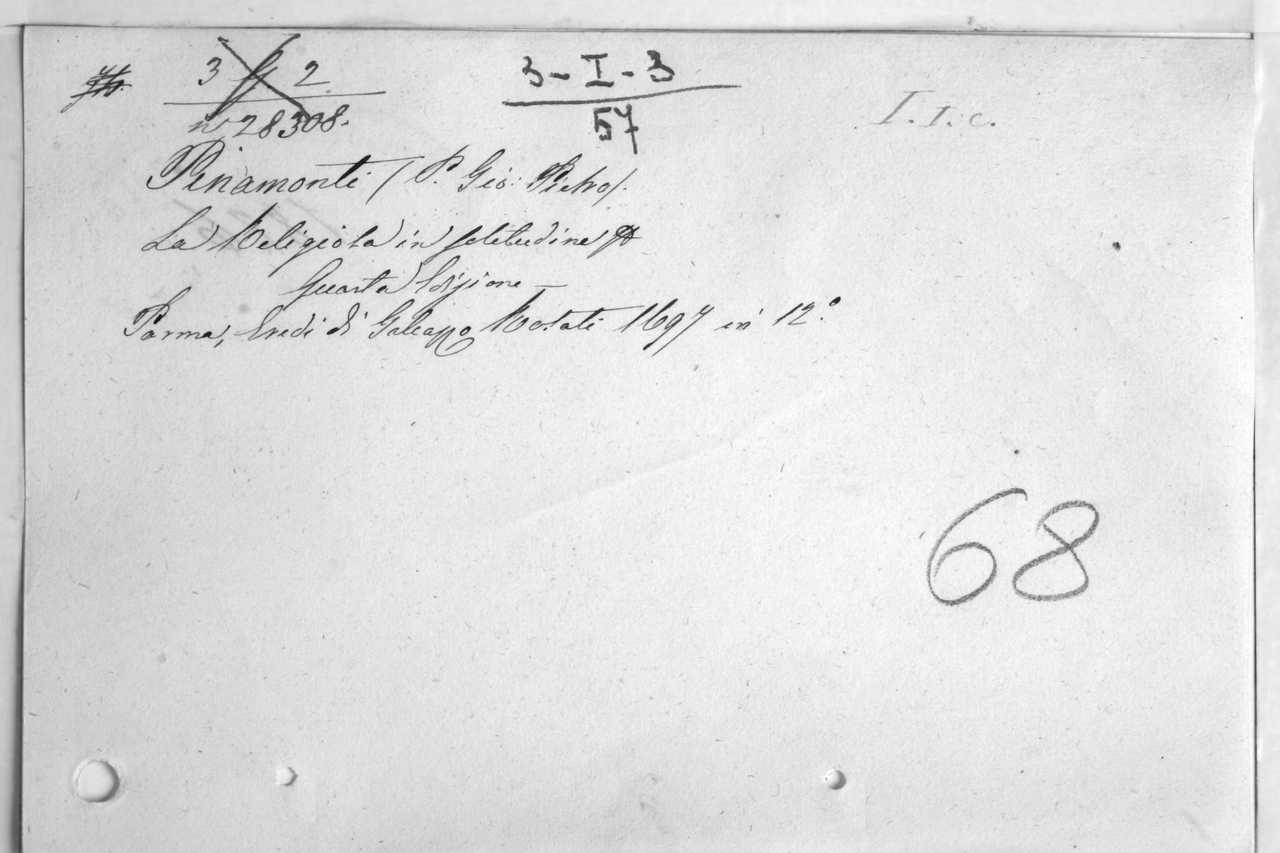 3 G 2
n° 28308.
3-I-3
57
I.I.c.
Pinamonti (P. Gio: Pietro).
La Religiosa in solitudine
Quarta Edizione —
Parma, Eredi di Galeazzo Rosati 1697 in 12.°
68